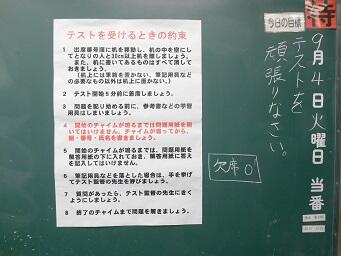 テストを受けるときの約束
1 出席番号順に机を移動し、机の中を空に
してとなりの人と30cm以上机を離しましょう。
また、机に書いてあるものはすべて消して
おきましょう。
(机上には筆箱を置かない。筆記用具など
の必要なもの以外は机上に置かない。)
2 テスト開始5分前に着席しましょう。
3 問題を配り始める前に、参考書などの学習
用具はしまいましょう。
4 開始のチャイムが鳴るまでは問題用紙を開
いてはいけません。チャイムが鳴ってから、
組・番号・氏名を書きましょう。
5 開始のチャイムが鳴るまでは、問題用紙を
解答用紙の下に入れておき、解答用紙に答え
を記入してはいけません。
6 筆記用具などを落とした場合は、手を挙げ
てテスト監督の先生を呼びましょう。
7 質問があったら、テスト監督の先生にきく
ようにしましょう。
8 終了のチャイムまで問題を解きましょう。
欠席 0
今日の目標
テストを
頑張りなさい。
9月4日火曜日 当番